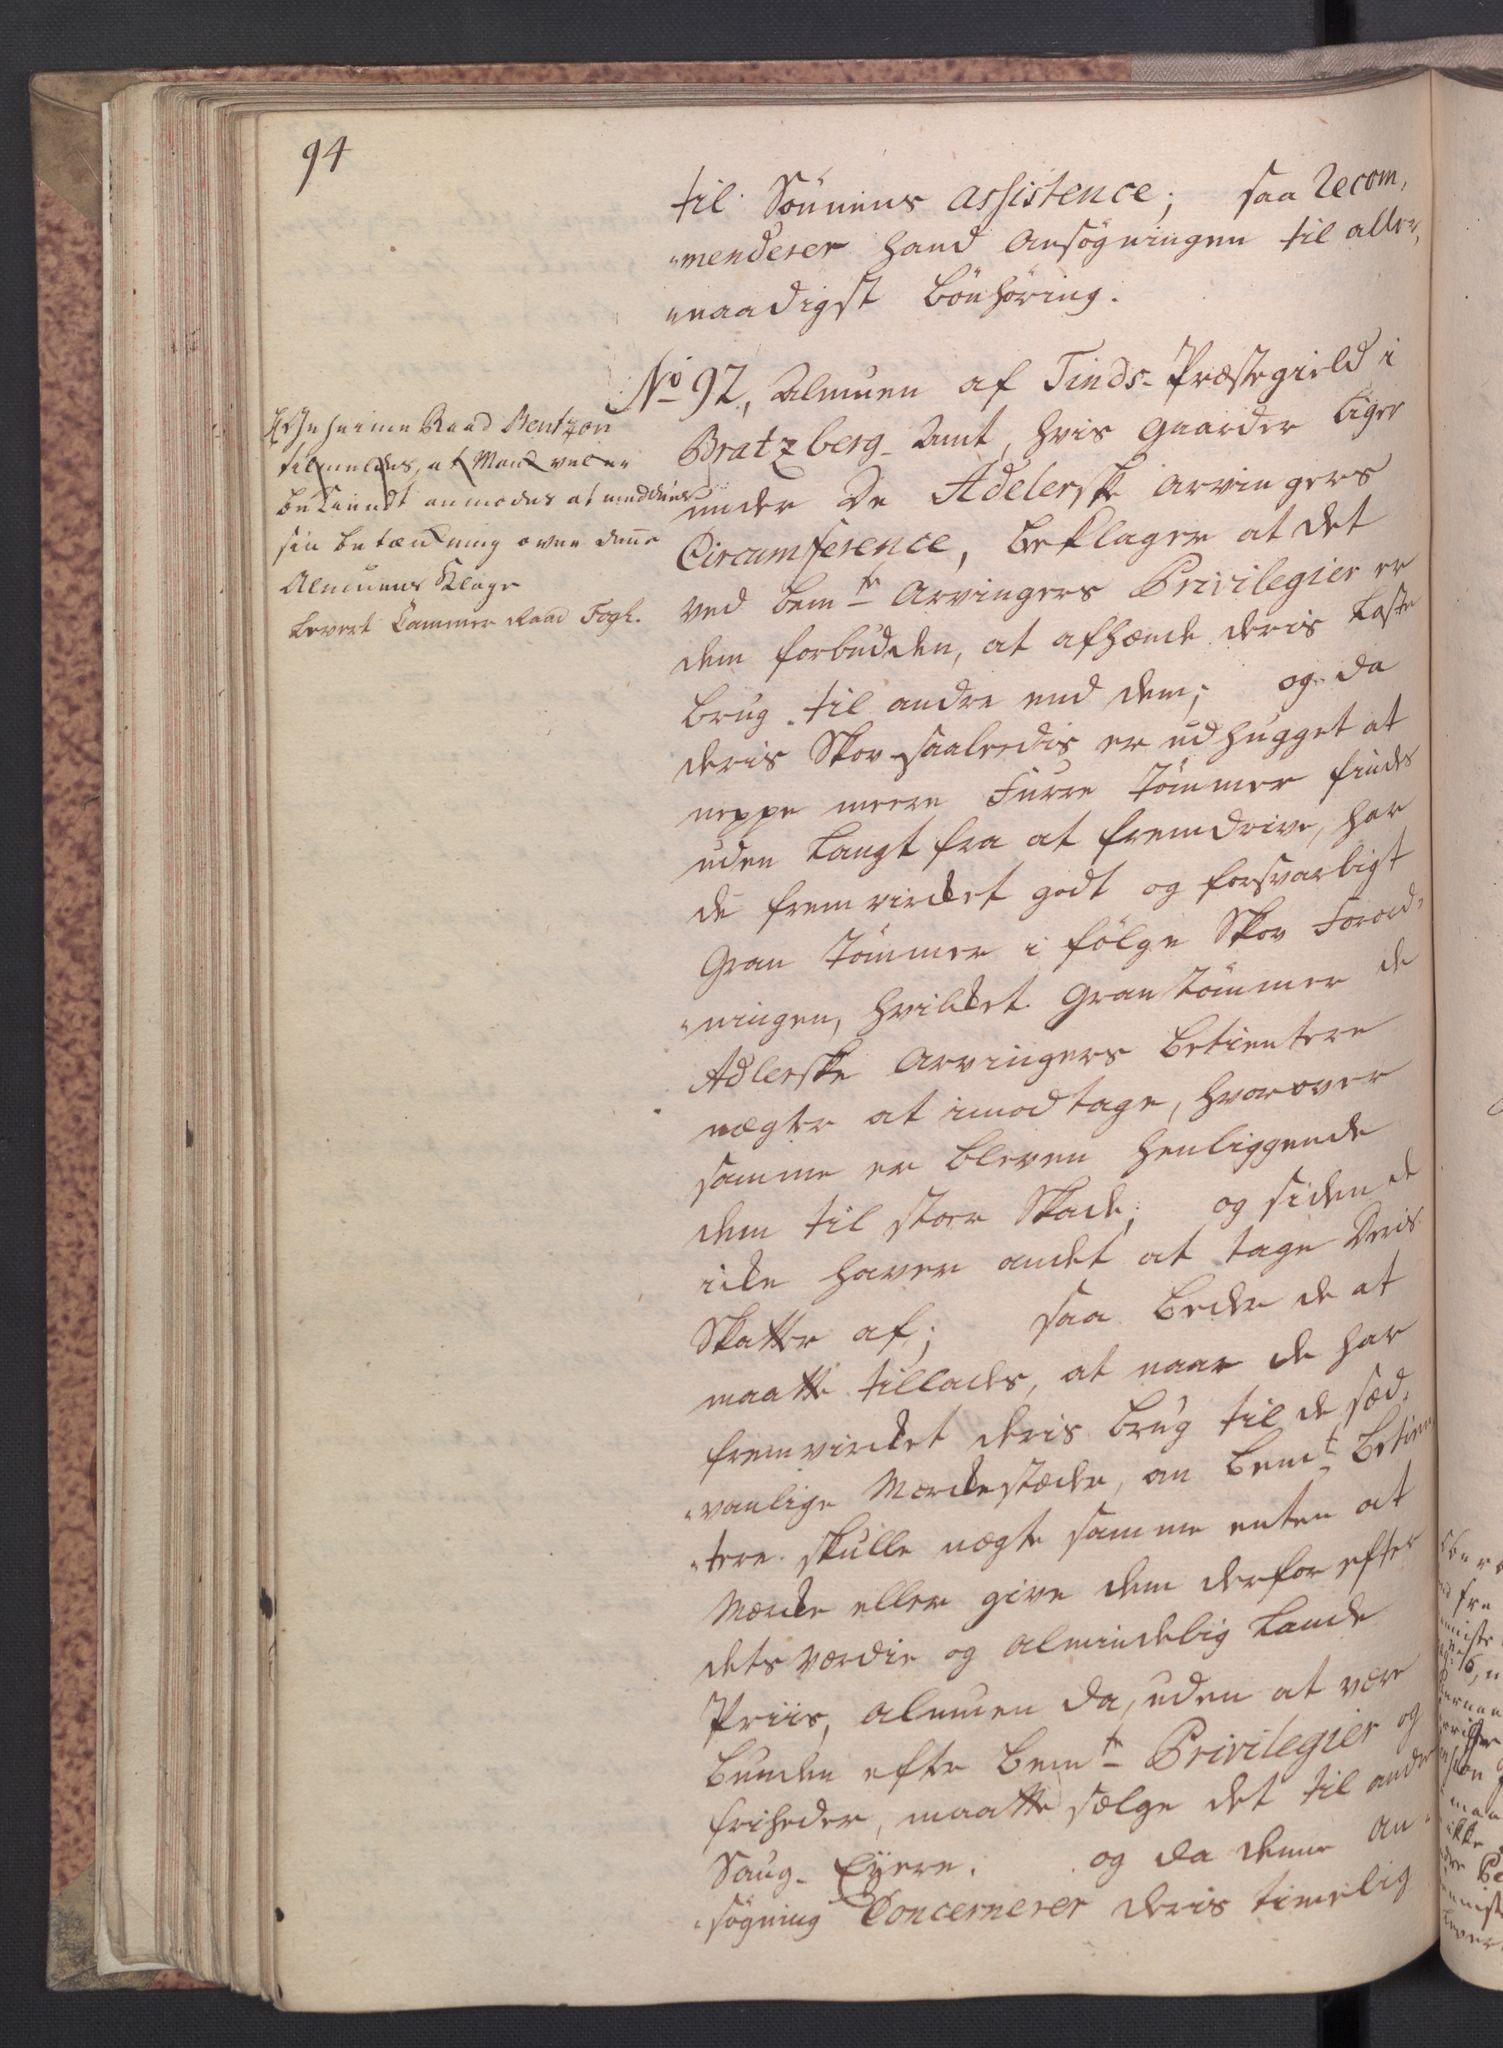 94
til Sönnens assistence; saa recom,
"menderer hand Ansögningen til aller,
"naadigst bönhöring.
No 92, Almuen af Tinds-Præstegield i
Bratzberg-Amt, hvis Gaarder ligger
under De Adelerske Arvingers
Circumference, beklager at det
ved bemte Arvingers Privilegier er
dem forbudden, at afhænde deris Laste
brug til andre end dem; og da
deris Skov saaleedis er udhugget at
neppe meere Furre Tömmer findes
uden langt fra at fremdrive, har
de fremvircket godt og forsvarligt
Gran Tömmer i fölge Skov Forord,
"ningen, hvilcket Gran Tömmer de
Adlerske Arvingers betientere
nægter at imodtage, hvorover
samme er bleven henliggende
dem til stoer Skade; og siden de
icke haver andet at tage Deris
Skatter af; saa beder de at
maatte tillades, at naar de har
fremvircket deris brug til de sæd,
"vanlige Mercke stæder, om bemt betien
"tere skulle nægte samme enten at
Mercke eller give dem derfor efter
dets værdie og almindelig Lands
Priis, Almuen da, uden at være
bunden efter bemte Privilegier og
friheder, maatte sælge det til andre
Saug-Eyere. og da denne An-
"sögning Concernerer deris timelig
Geheime Raad Bentzon
tilmeldes, at Mand vel er
bekiendt anmodes at meddele
sin betænckning over denne
Almuens Klage
Levert Cammer Raad Fogh.